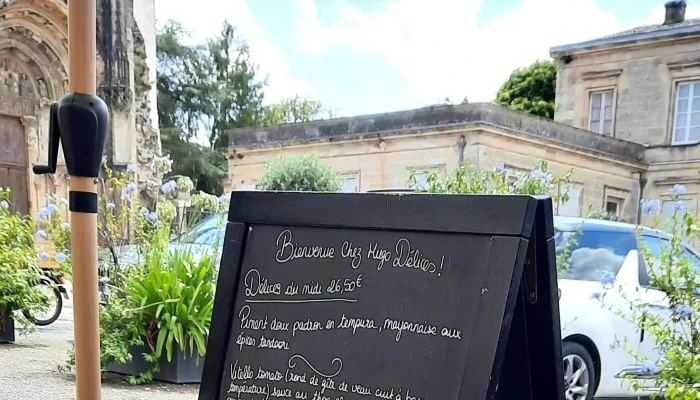 Bienvenue Chez Hugo Délices !
Délices du midi 26,50€
Piment doux padron en tempura, mayonnaise aux
épices tandoori
Vitello tomato (rond de gite de veau cuit à
température) sauce au